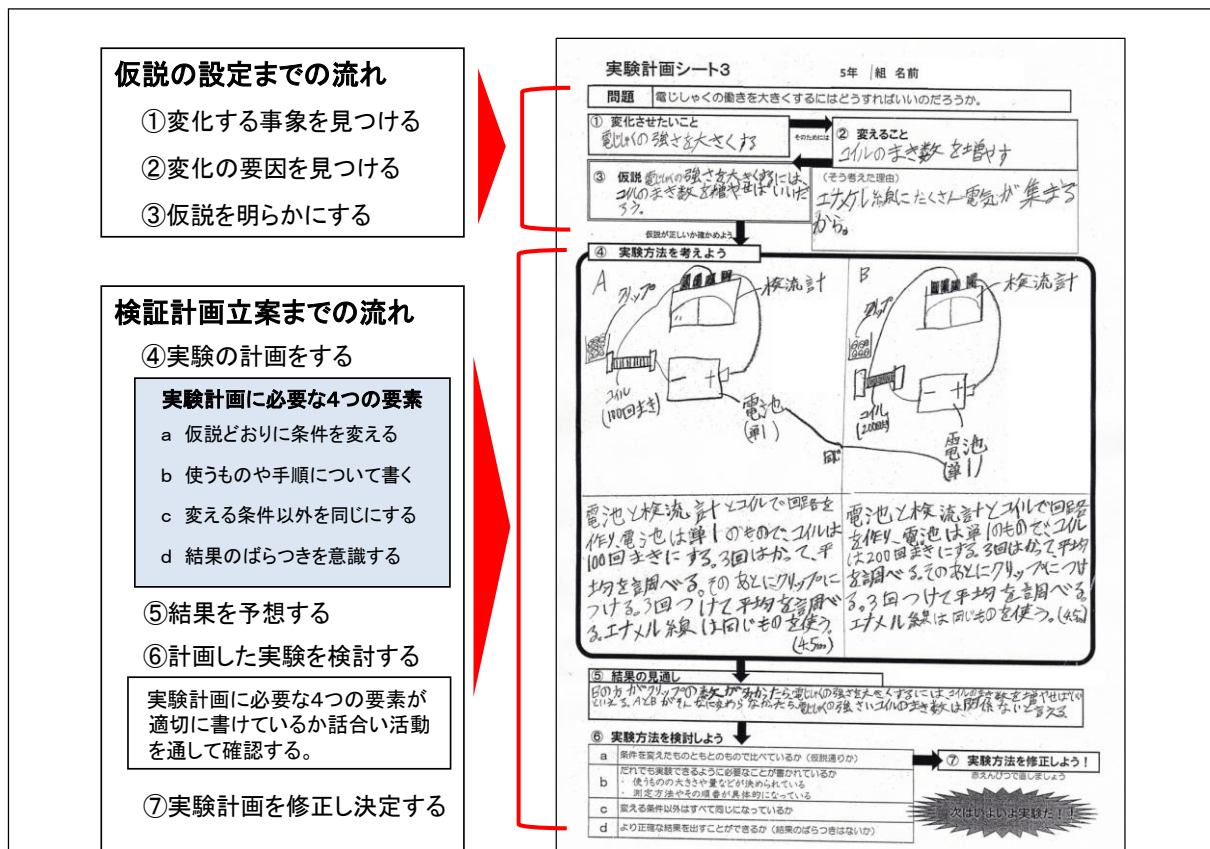 仮説の設定までの流れ
①変化する事象を見つける
②変化の要因を見つける
③仮説を明らかにする
検証計画立案までの流れ
④実験の計画をする
実験計画に必要な4つの要素
a 仮説どおりに条件を変える
b 使うものや手順について書く
c 変える条件以外を同じにする
d 結果のばらつきを意識する
⑤結果を予想する
⑥計画した実験を検討する
実験計画に必要な4つの要素が
適切に書けているか話合い活動
を通して確認する。
⑦実験計画を修正し決定する
実験計画シート3
5年 1組 名前
問題 電じしゃくの働きを大きくするにはどうすればいいのだろうか。
① 変化させたいこと
電じしゃくの強さを大きくする
そのためには
② 変えること
コイルのまき数を増やす
③ 仮説 電じしゃくの強さを大きくするには、
コイルのまき数を増やせばいいだ
ろう。
(そう考えた理由)
エナメル線にたくさん電気が集まる
から。
仮説が正しいか確かめよう
④ 実験方法を考えよう
A
クリップ
検流計
コイル
(100回まき)
電池
(単1)
同じ
B
クリップ
検流計
コイル
(200回まき)
電池
(単1)
電池と検流計とコイルで回路を
作り、電池は単1のもので、コイルは
100回まきにする。3回はかって、平
均を調べる。そのあとにクリップに
つける。3回つけて平均を調べ
る。エナメル線は同じものを使う。
(4.5m)
電池と検流計とコイルで回路
を作り、電池は単1のもので、コイル
は200回まきにする。3回はかって平均
を調べる。そのあとにクリップにつけ
る。3回つけて平均を調べる。
エナメル線は同じものを使う。(4.5m)
⑤ 結果の見通し
Bの方がクリップの数が多かったら電じしゃくの強さを大きくするには、コイルのまき数を増やせばいい
といえる。AとBがそんなに変わらなかったら、電じしゃくの強さにコイルのまき数は関係ないと言える
⑥ 実験方法を検討しよう
a 条件を変えたものともとのもので比べているか(仮説通りか)
b だれでも実験できるように必要なことが書かれているか
・ 使うものの大きさや量などが決められている
・ 測定方法やその順番が具体的になっている
c 変える条件以外はすべて同じになっているか
d より正確な結果を出すことができるか(結果のばらつきはないか)
⑦ 実験方法を修正しよう!
赤えんぴつで直しましょう
次はいよいよ実験だ!!